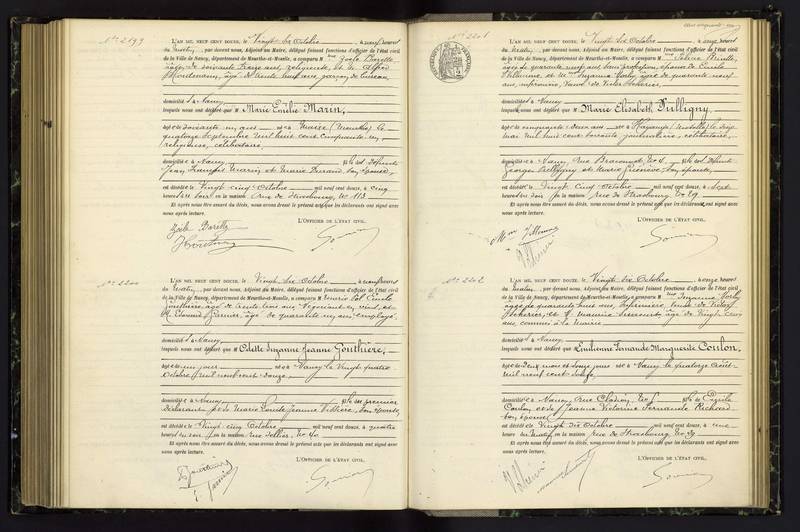 No 2199
L'AN MIL NEUF CENT DOUZE, le Vingt six Octobre, à onze heures
du matin, par devant nous, Adjoint au Maire, délégué faisant fonctions d'officier de l'état civil
de la Ville de Nancy, département de Meurthe-et-Moselle, a comparu M Zoële Barelle,
âgée de soixante treize ans, religieuse, et M. Alfred
âgé de trente huit ans garçon de bureau,
domiciliés à Nancy
lesquels nous ont déclaré que M Marie Emilie Marin,
âgée de soixante un ans née à Maizé
quatorze Septembre mil huit cent cinquante un,
religieuse, célibataire,
domiciliée à Nancy fille de défunts
Jean François Marin et Marie Durand son épouse,
est décédée le Vingt cinq Octobre mil neuf cent douze, à cinq
heures du soir en la maison rue de Strasbourg, No 113
Et après nous être assuré du décès, nous avons dressé le présent acte que les déclarants ont signé avec
nous après lecture.
L'OFFICIER DE L'ETAT CIVIL,
Zoële Barelle
No 2200
L'AN MIL NEUF CENT DOUZE, le Vingt six Octobre, à onze heures
du matin, par devant nous, Adjoint au Maire, délégué faisant fonctions d'officier de l'état civil
de la Ville de Nancy, département de Meurthe-et-Moselle, a comparu M Henri Paul Emile
Gouthière, âgé de trente trois ans Négociant en vins, et
M. Edouard Garnier, âgé de quarante un ans employé,
domiciliés à Nancy
lesquels nous ont déclaré que M Odette Suzanne Jeanne Gouthière,
âgée de un jour née à Nancy le Vingt quatre
Octobre mil neuf cent douze,
domiciliée à Nancy fille du premier
déclarant et de Marie Louise Jeanne Villière, son épouse,
est décédée le Vingt cinq Octobre mil neuf cent douze, à quatre
heures du soir en la maison rue Sellier, No 40
Et après nous être assuré du décès, nous avons dressé le présent acte que les déclarants ont signé avec
nous après lecture.
L'OFFICIER DE L'ETAT CIVIL,
No 2201
L'AN MIL NEUF CENT DOUZE, le Vingt six Octobre, à onze heures
du matin, par devant nous, Adjoint au Maire, délégué faisant fonctions d'officier de l'état civil
de la Ville de Nancy, département de Meurthe-et-Moselle, a comparu M
âgée de quarante neuf ans sans profession, épouse de Emile
et Mme Suzanne Vorby âgée de quarante huit
ans, infirmière, Veuve de Victor
domiciliés à Nancy
lesquels nous ont déclaré que M Marie Elisabeth Pulligny
âgée de cinquante deux ans née à Hayange (Moselle) le dix
mai mil huit cent soixante journalière, célibataire,
domiciliée à Nancy, rue Braconnot, No 4 fille de défunts
Georges Pulligny et Marie son épouse,
est décédée le Vingt Cinq Octobre mil neuf cent douze, à sept
heures du soir en la maison rue de Strasbourg No 29
Et après nous être assuré du décès, nous avons dressé le présent acte que les déclarants ont signé avec
nous après lecture.
L'OFFICIER DE L'ETAT CIVIL,
No 2202
L'AN MIL NEUF CENT DOUZE, le Vingt six Octobre, à onze heures
du matin, par devant nous, Adjoint au Maire, délégué faisant fonctions d'officier de l'état civil
de la Ville de Nancy, département de Meurthe-et-Moselle, a comparu M Suzanne Vorby,
âgée de quarante huit ans, infirmière, Veuve de Victor
et M. Maurice âgé de Vingt cinq
ans, commis à la mairie
domiciliés à Nancy
lesquels nous ont déclaré que M Emilienne Fernande Marguerite Coulon,
âgée de deux mois et douze jours née à Nancy le quatorze Août
mil neuf cent douze,
domiciliée à Nancy, rue Clodion, No fille de
Coulon, et de Jeanne Victorine Fernande Richard
son épouse
est décédée le Vingt six Octobre mil neuf cent douze, à une
heure du matin en la maison rue de Strasbourg, No 29
Et après nous être assuré du décès, nous avons dressé le présent acte que les déclarants ont signé avec
nous après lecture.
L'OFFICIER DE L'ETAT CIVIL,